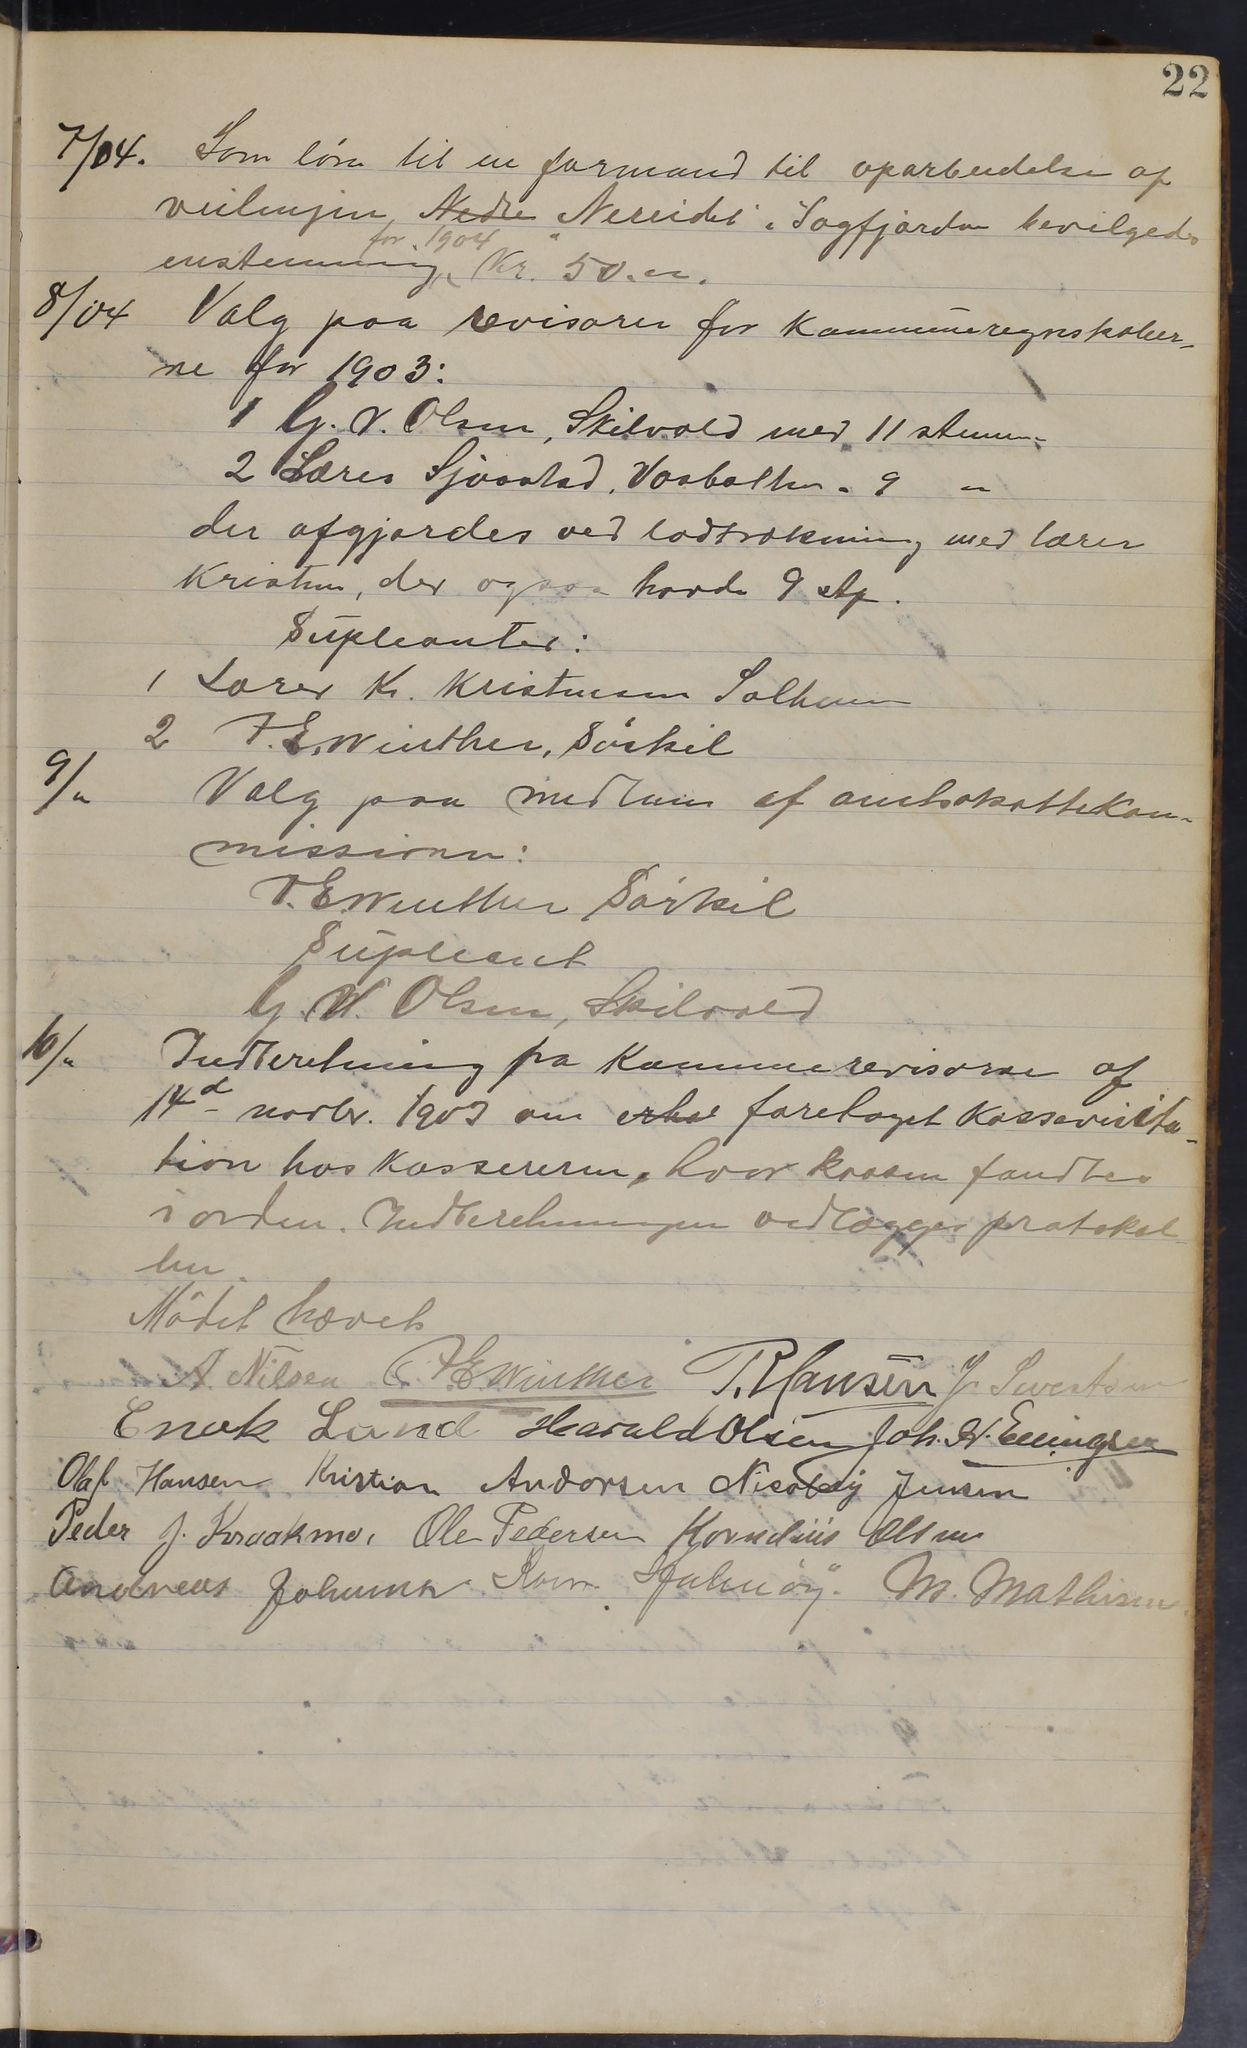 22
7/04. Som løn til en formand til oparbeidelse af
veilinjen Nedre Nereidet i Sagfjorden bevilgedes
for 1904
enstemmig Kr. 50.
8/04 Valg paa revisorer for Kommuneregnskaber-
ne for 1903:
1 G. V. Olsen, Skilvold med 11 stem-
2 Lærer Sjaastad, " 9 "
der afgjordes ved lodtrækning med lærer
Kristen, der ogsaa havde 9 st.
Supleanter:
1 Lærer K. Kristensen Solheim
2 P. E. Winther, Sörkil
9/" Valg paa medlem af amtsskattekom-
missionen:
P. E. Winther Sörkil
Supleant
G. V. Olsen, Skilvold
10/" Indberetning fra Kommunerevisorne af
14d novbr. 1903 om foretaget Kassevisita-
tion hos Kassereren, hvor kassen fandtes
i orden. Indberetningen vedlægges protokol
len.
Mødet hævet
A. Nilsen P E Winther P. Hansen J. Sivertsen
Enok Lund Harald Olsen Joh. H. Ellingsen
Olaf Hansen Kristian Andorsen Nicolay Jensen
Peder J. Kraakmo. Ole Pedersen Kornelius Olsen
Andreas Johansen M. Mathisen